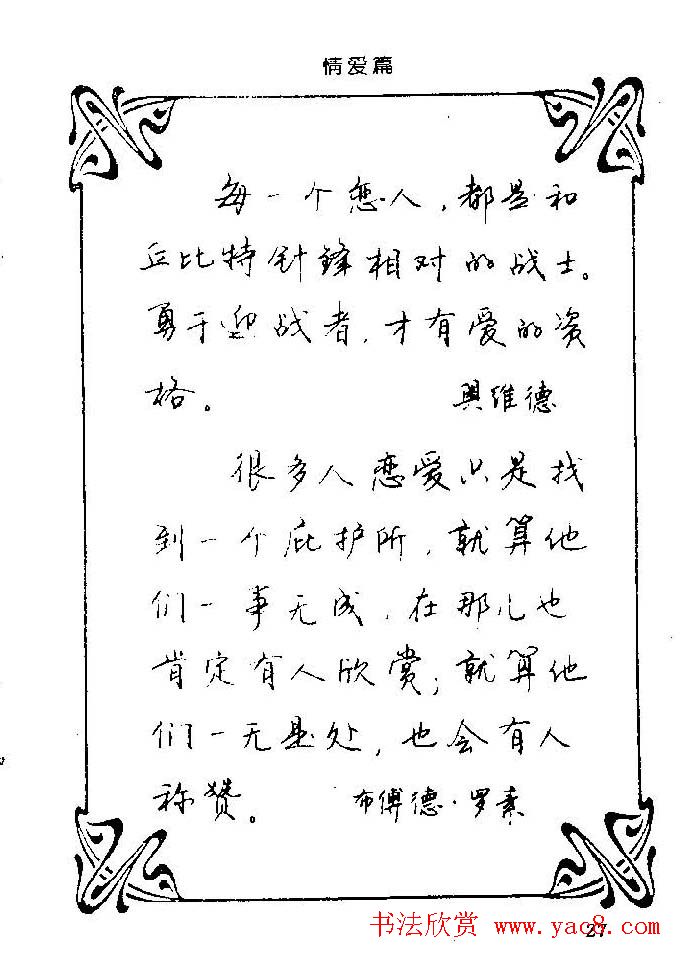 情爱篇
每一个恋人，都是和
丘比特针锋相对的战士。
勇于迎战者，才有爱的资
格。 奥维德
很多人恋爱只是找
到一个庇护所，就算他
们一事无成，在那儿也
肯定有人欣赏；就算他
们一无是处，也会有人
称赞。 布傅德·罗素
书法欣赏 www.yac8.com
27